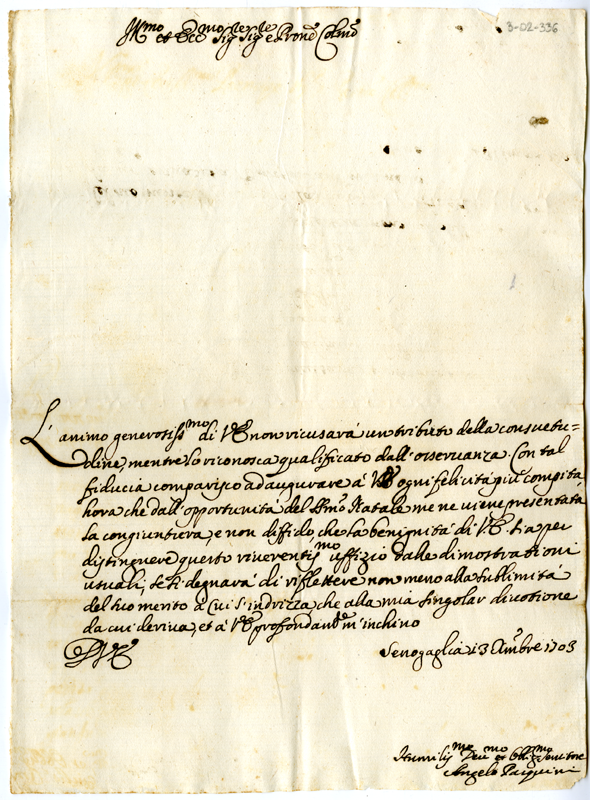 Ill.mo et Ecc.mo Sig.re Sig.re e Prone Colmo
3-02-336
L'animo generosiss.mo di V.E. non ricusarà un tributo della consuetu=
dine, mentre lo riconosca qualificato dall'osseruanza. Con tal
fiducia comparisco ad augurare à V.E. ogni felicità più compita
hora che dall'opportunità del SSmo Natale me ne uiene presentata
la congiuntura, e non diffido, che la benignità di V.E. sia per
distinguere questo riuerentiss.mo uffizio dalle dimostrationi
usuali, se si degnarà di riflettere non meno alla sublimità
del suo merito à cui s'indrizza, che alla mia singolar diuotione
da cui deriua, et à V.E. profondam.te m'inchino
D. V. E.
Senogaglia 13 Xmbre 1703
Humiliss.mo Deu.mo et Obblig.mo Seruitore
Angelo Pasquini